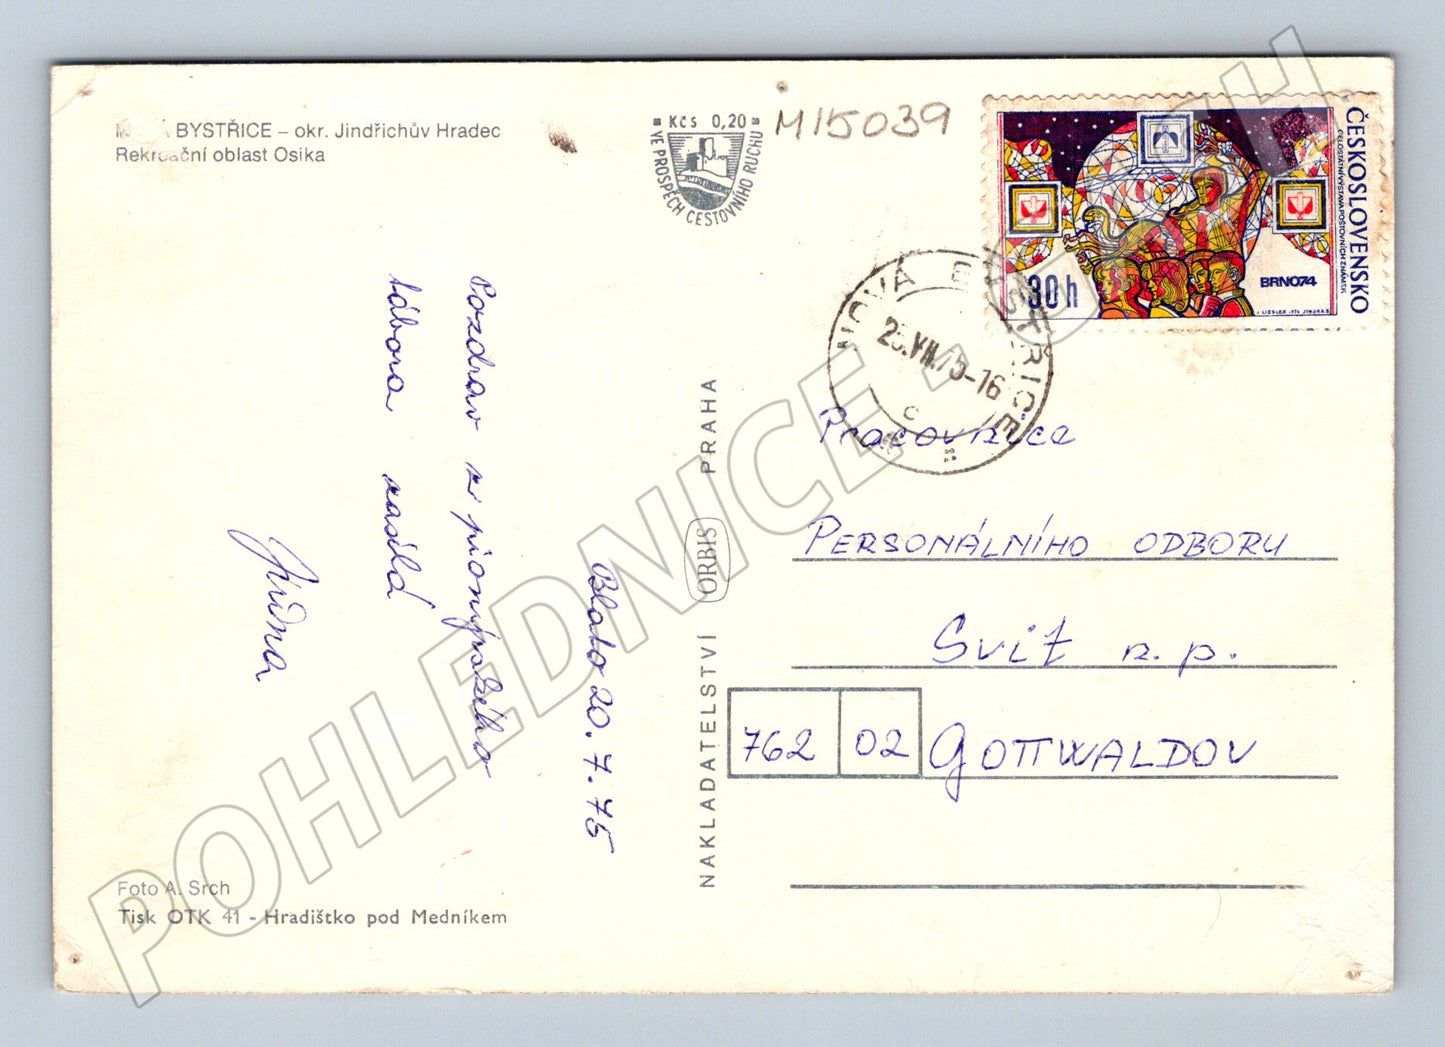 BYSTŘICE – okr. Jindřichův Hradec
Rekreační oblast Osika
Kčs 0,20
VE PROSPĚCH CESTOVNÍHO RUCHU
M15039
ČESKOSLOVENSKO
CELOSTÁTNÍ VÝSTAVA POŠTOVNÍCH ZNÁMEK
BRNO74
30h
NOVÁ BYSTŘICE
VII.75-16
c
Blato 20.7.75
Pozdrav z pionýrského
tábora zasílá
Jiřina
NAKLADATELSTVÍ ORBIS PRAHA
Pracovnice
PERSONÁLNÍHO ODBORU
Svit n.p.
762 02 GOTTWALDOV
Foto A. Srch
Tisk OTK 41 - Hradištko pod Medníkem